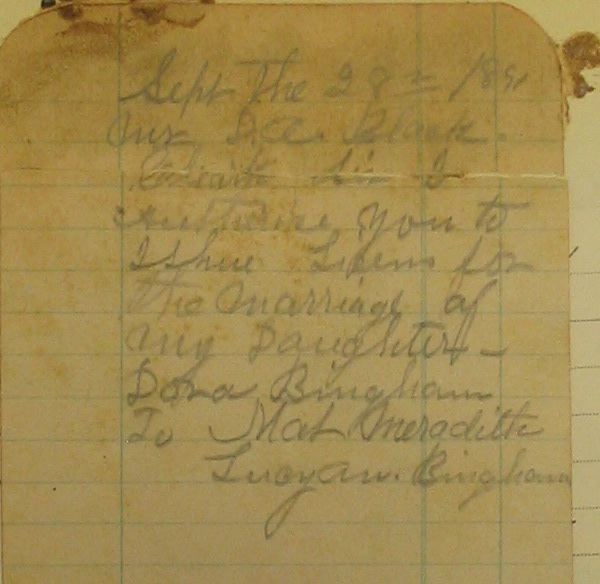 Sept The 28th 189
Mr I.A. Black.
Clerk Sir I
authorise you to
Ishue Licens for
the Marriage of
My Daughter
Dora Bingham
To Mat Meradith
Lucyan. Bingham